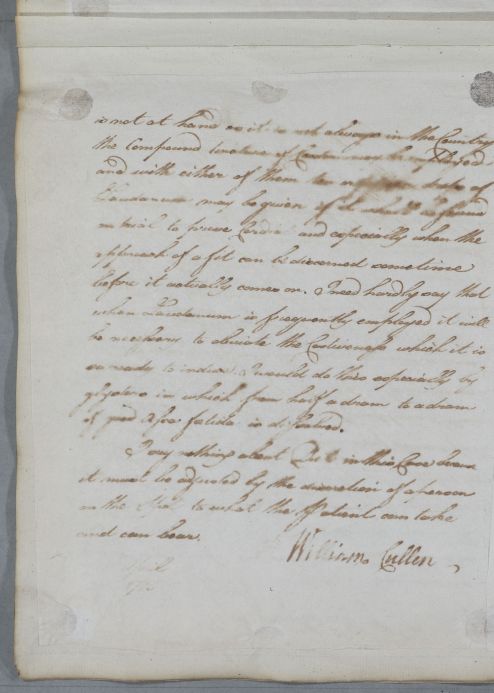 is not at hand as it is not always in the Country
the Compound tincture of Castor may be employed
and with either of them ten or drops of
Laudanum may be given if it should be found
on trial to prove Cordial and especially when the
approach of a fit can be discerned sometime
before it actually comes on. I need hardly say that
when Laudanum is frequently employed it will
be necessary to obviate the Costiveness which it is
so ready to induce. I would do this especially by
glysters in which from half a dram to a dram
of good Asa fœtida is dissolved.
I say nothing about Diet in this Case because
it must be adjusted by the discretion of a person
on the Spot to what the Patient can take
and can bear.
William Cullen